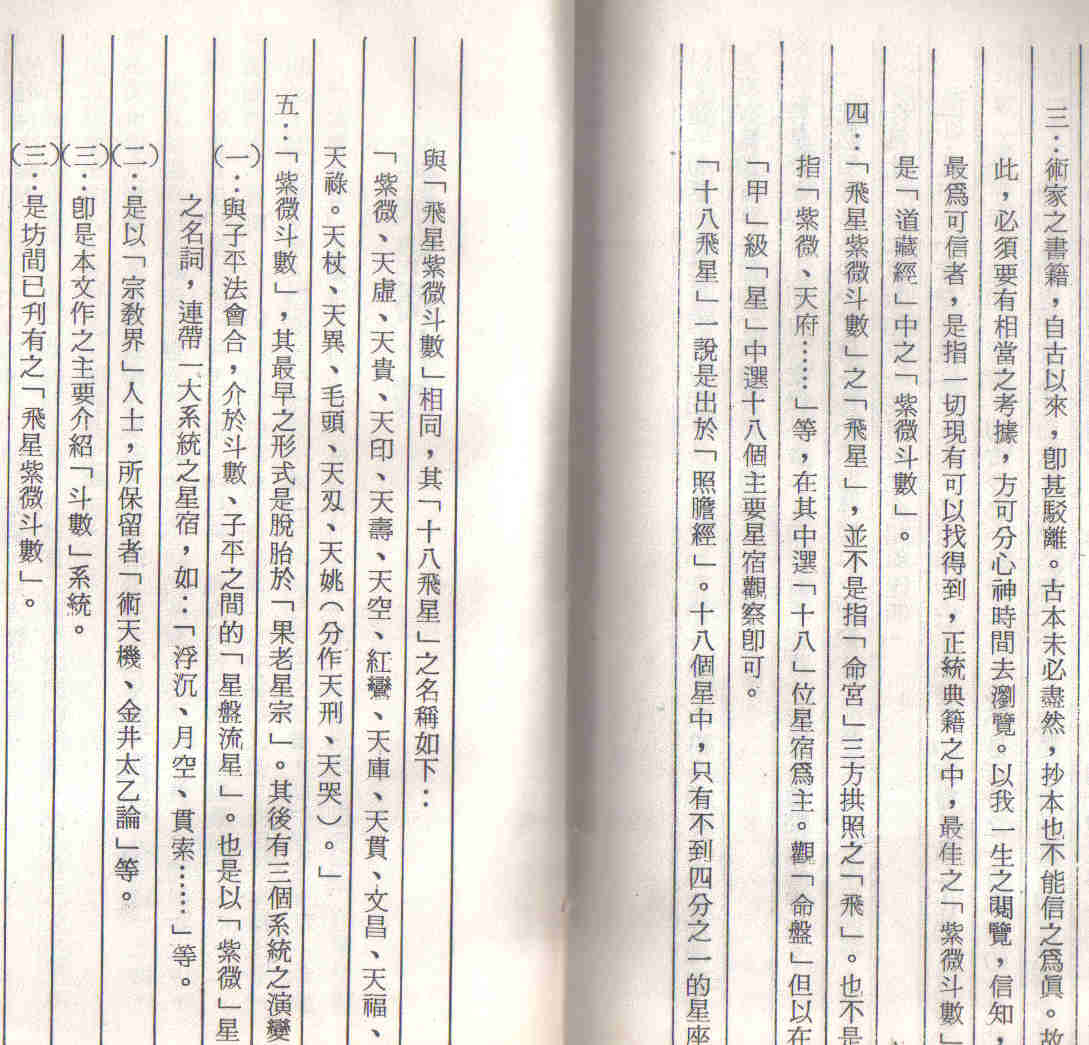 三：術家之書籍，自古以來，卽甚駁離。古本未必盡然，抄本也不能信之爲眞。故
此，必須要有相當之考據，方可分心神時間去瀏覽。以我一生之閱覽，信知，
最爲可信者，是指一切現有可以找得到，正統典籍之中，最佳之「紫微斗數」
是「道藏經」中之「紫微斗數」。
四：「飛星紫微斗數」之「飛星」，並不是指「命宮」三方拱照之「飛」。也不是
指「紫微、天府……」等，在其中選「十八」位星宿爲主。觀「命盤」但以在
「甲」級「星」中選十八個主要星宿觀察卽可。
「十八飛星」一說是出於「照瞻經」。十八個星中，只有不到四分之一的星座
與「飛星紫微斗數」相同，其「十八飛星」之名稱如下：
「紫微、天虛、天貴、天印、天壽、天空、紅鸞、天庫、天貫、文昌、天福、
天祿。天杖、天異、毛頭、天刄、天姚（分作天刑、天哭）。」
五：「紫微斗數」，其最早之形式是脫胎於「果老星宗」。其後有三個系統之演變
(一)：與子平法會合，介於斗數、子平之間的「星盤流星」。也是以「紫微」星
之名詞，連帶一大系統之星宿，如：「浮沉、月空、貫索……」等。
(二)：是以「宗教界」人士，所保留者「術天機、金井太乙論」等。
(三)：卽是本文作之主要介紹「斗數」系統。
(三)：是坊間已刋有之「飛星紫微斗數」。